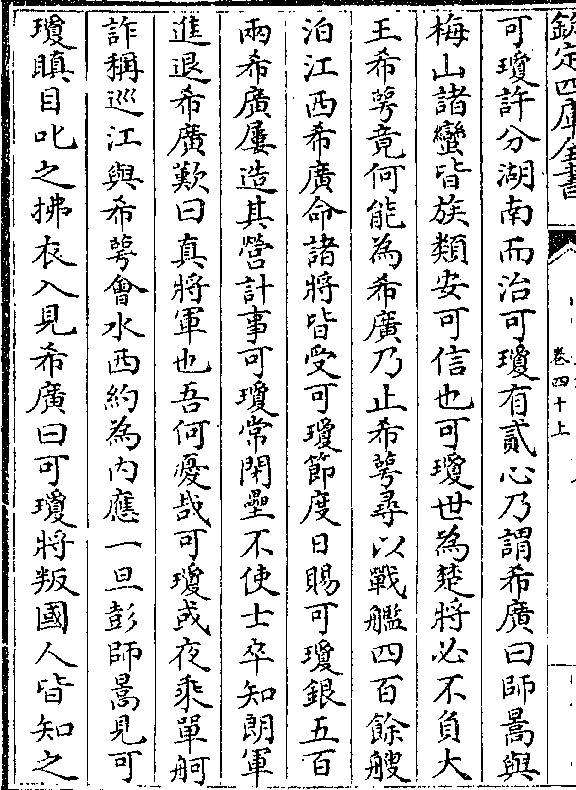 欽定四庫全書
卷四十上
可瓊許分湖南而治可瓊有貳心乃謂希廣曰師暠與
梅山諸蠻皆族類安可信也可瓊世為楚將必不負大
王希萼竟何能為希廣乃止希萼尋以戰艦四百餘艘
泊江西希廣命諸將皆受可瓊節度日賜可瓊銀五百
兩希廣屢造其營計事可瓊常閉壘不使士卒知朗軍
進退希廣歎曰真將軍也吾何憂哉可瓊或夜乘單舸
詐稱巡江與希萼會水西約為内應一旦彭師暠見可
瓊瞋目叱之拂衣入見希廣曰可瓊將叛國人皆知之